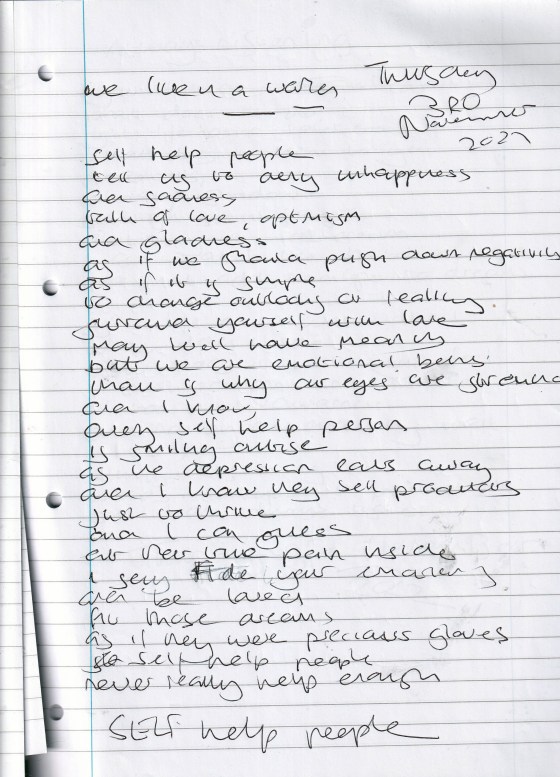 we live in a
Thursday
3RD
November
self help people
tell us to deny unhappiness
and sadness
talk of love, optimism
and gladness
as if we should push down negativity
as if it is simple
to change outlooks or feelings
surround yourself with love
may well have meaning
but we are emotional beings
is why our eyes are
and I know
every self help person
is smiling outside
as the depression eats away
and I know they sell products
just to thrive
and I can guess
at their true pain inside
I say your
and be loved
those dreams
as if they were precious gloves
self help people
never really help enough
SELF help people